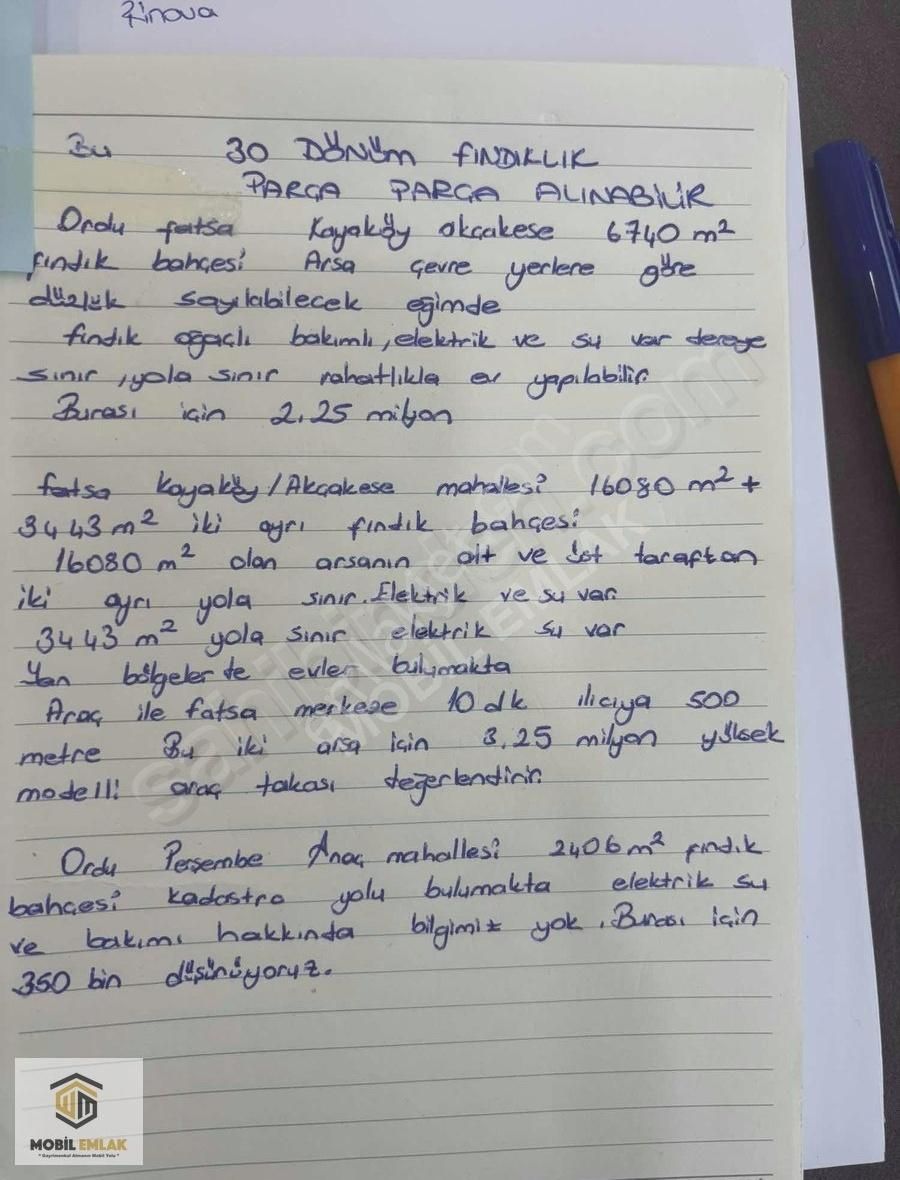 Zinova
Bu 30 DÖNÜM FINDIKLIK
PARÇA PARÇA ALINABİLİR
Ordu fatsa Kayaköy akçakese 6740 m²
fındık bahçesi Arsa çevre yerlere göre
düzlük sayılabilecek eğimde
fındık ağaçlı bakımlı, elektrik ve su var dereye
sınır, yola sınır rahatlıkla ev yapılabilir.
Burası için 2.25 milyon
fatsa Kayaköy/Akçakese mahallesi 16080 m² +
3443 m² iki ayrı fındık bahçesi
16080 m² olan arsanın alt ve üst taraftan
iki ayrı yola sınır. Elektrik ve su var.
3443 m² yola sınır elektrik su var
Yan bölgeler de evler bulumakta
Araç ile fatsa merkeze 10 dk ılıcıya 500
metre Bu iki arsa için 3.25 milyon yüksek
modelli araç takası değerlendirir.
Ordu Perşembe Anaç mahallesi 2406 m² fındık
bahçesi kadastro yolu bulumakta elektrik su
ve bakımı hakkında bilgimiz yok. Burası için
350 bin düşünüyoruz.
sahibinden.com
MOBİL EMLAK
MOBİL EMLAK
" Gayrimenkul Almanın Mobil Yolu "